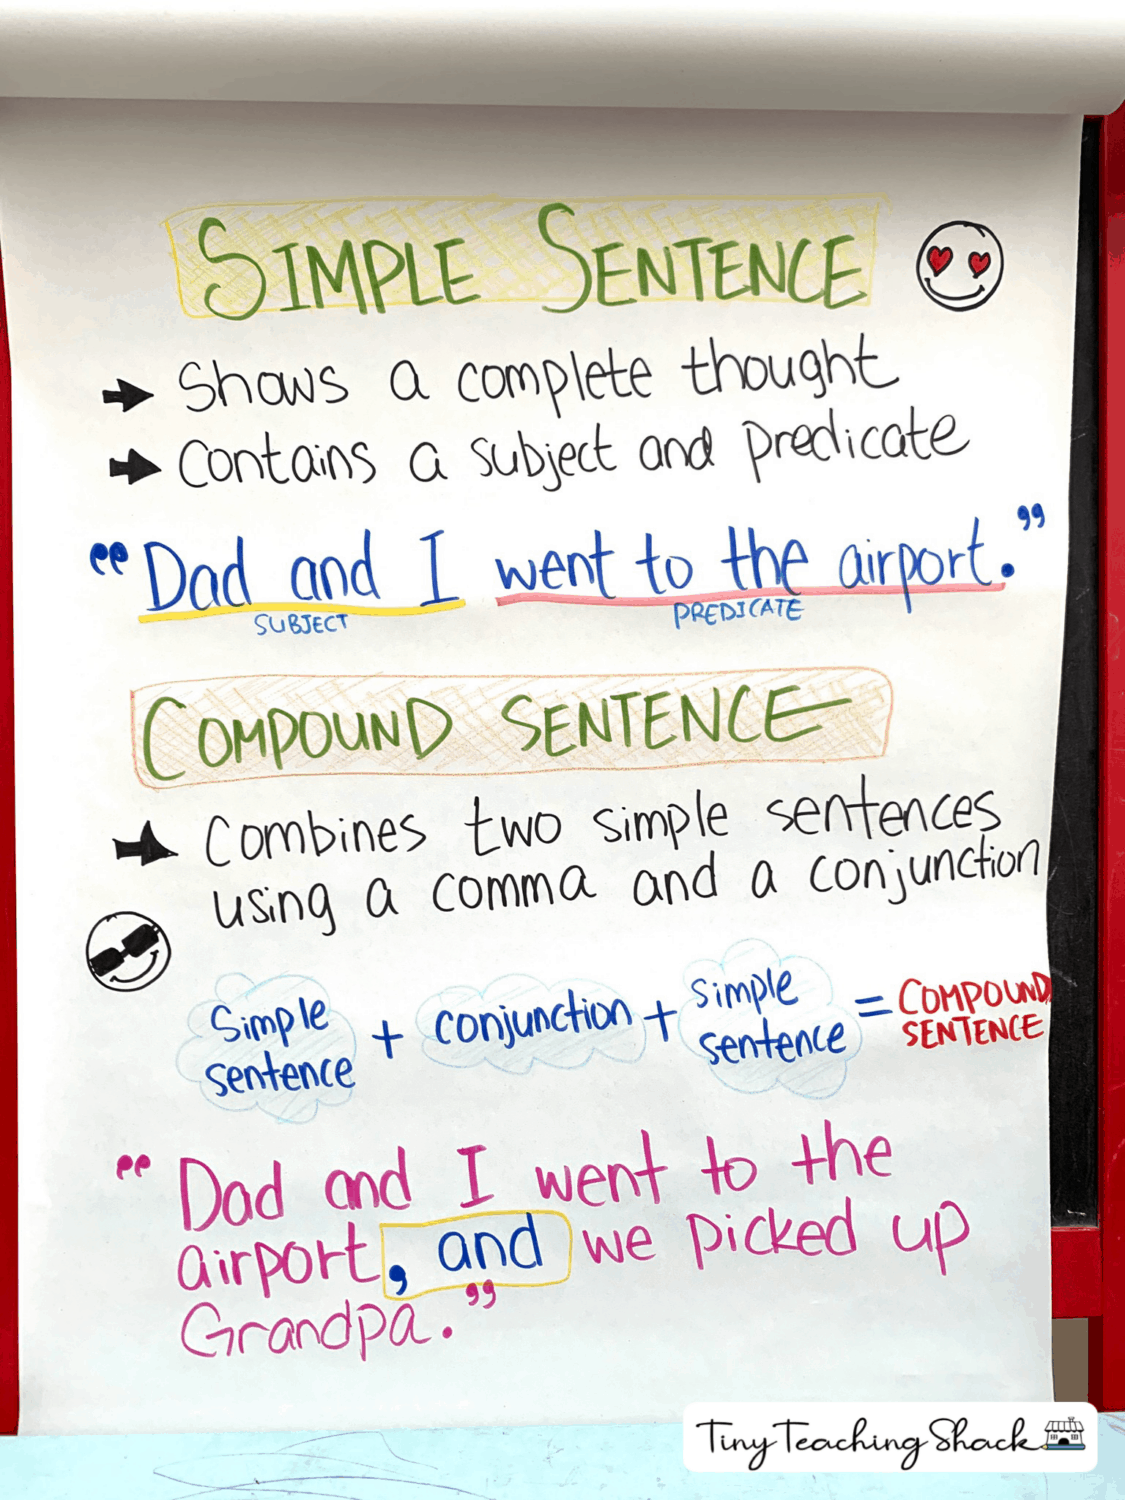 SIMPLE SENTENCE
→ Shows a complete thought
→ Contains a subject and predicate
“Dad and I went to the airport.”
SUBJECT PREDICATE
COMPOUND SENTENCE
→ Combines two simple sentences
using a comma and a conjunction
simple sentence + conjunction + simple sentence = COMPOUND SENTENCE
“Dad and I went to the
airport, and we picked up
Grandpa.”
Tiny Teaching Shack